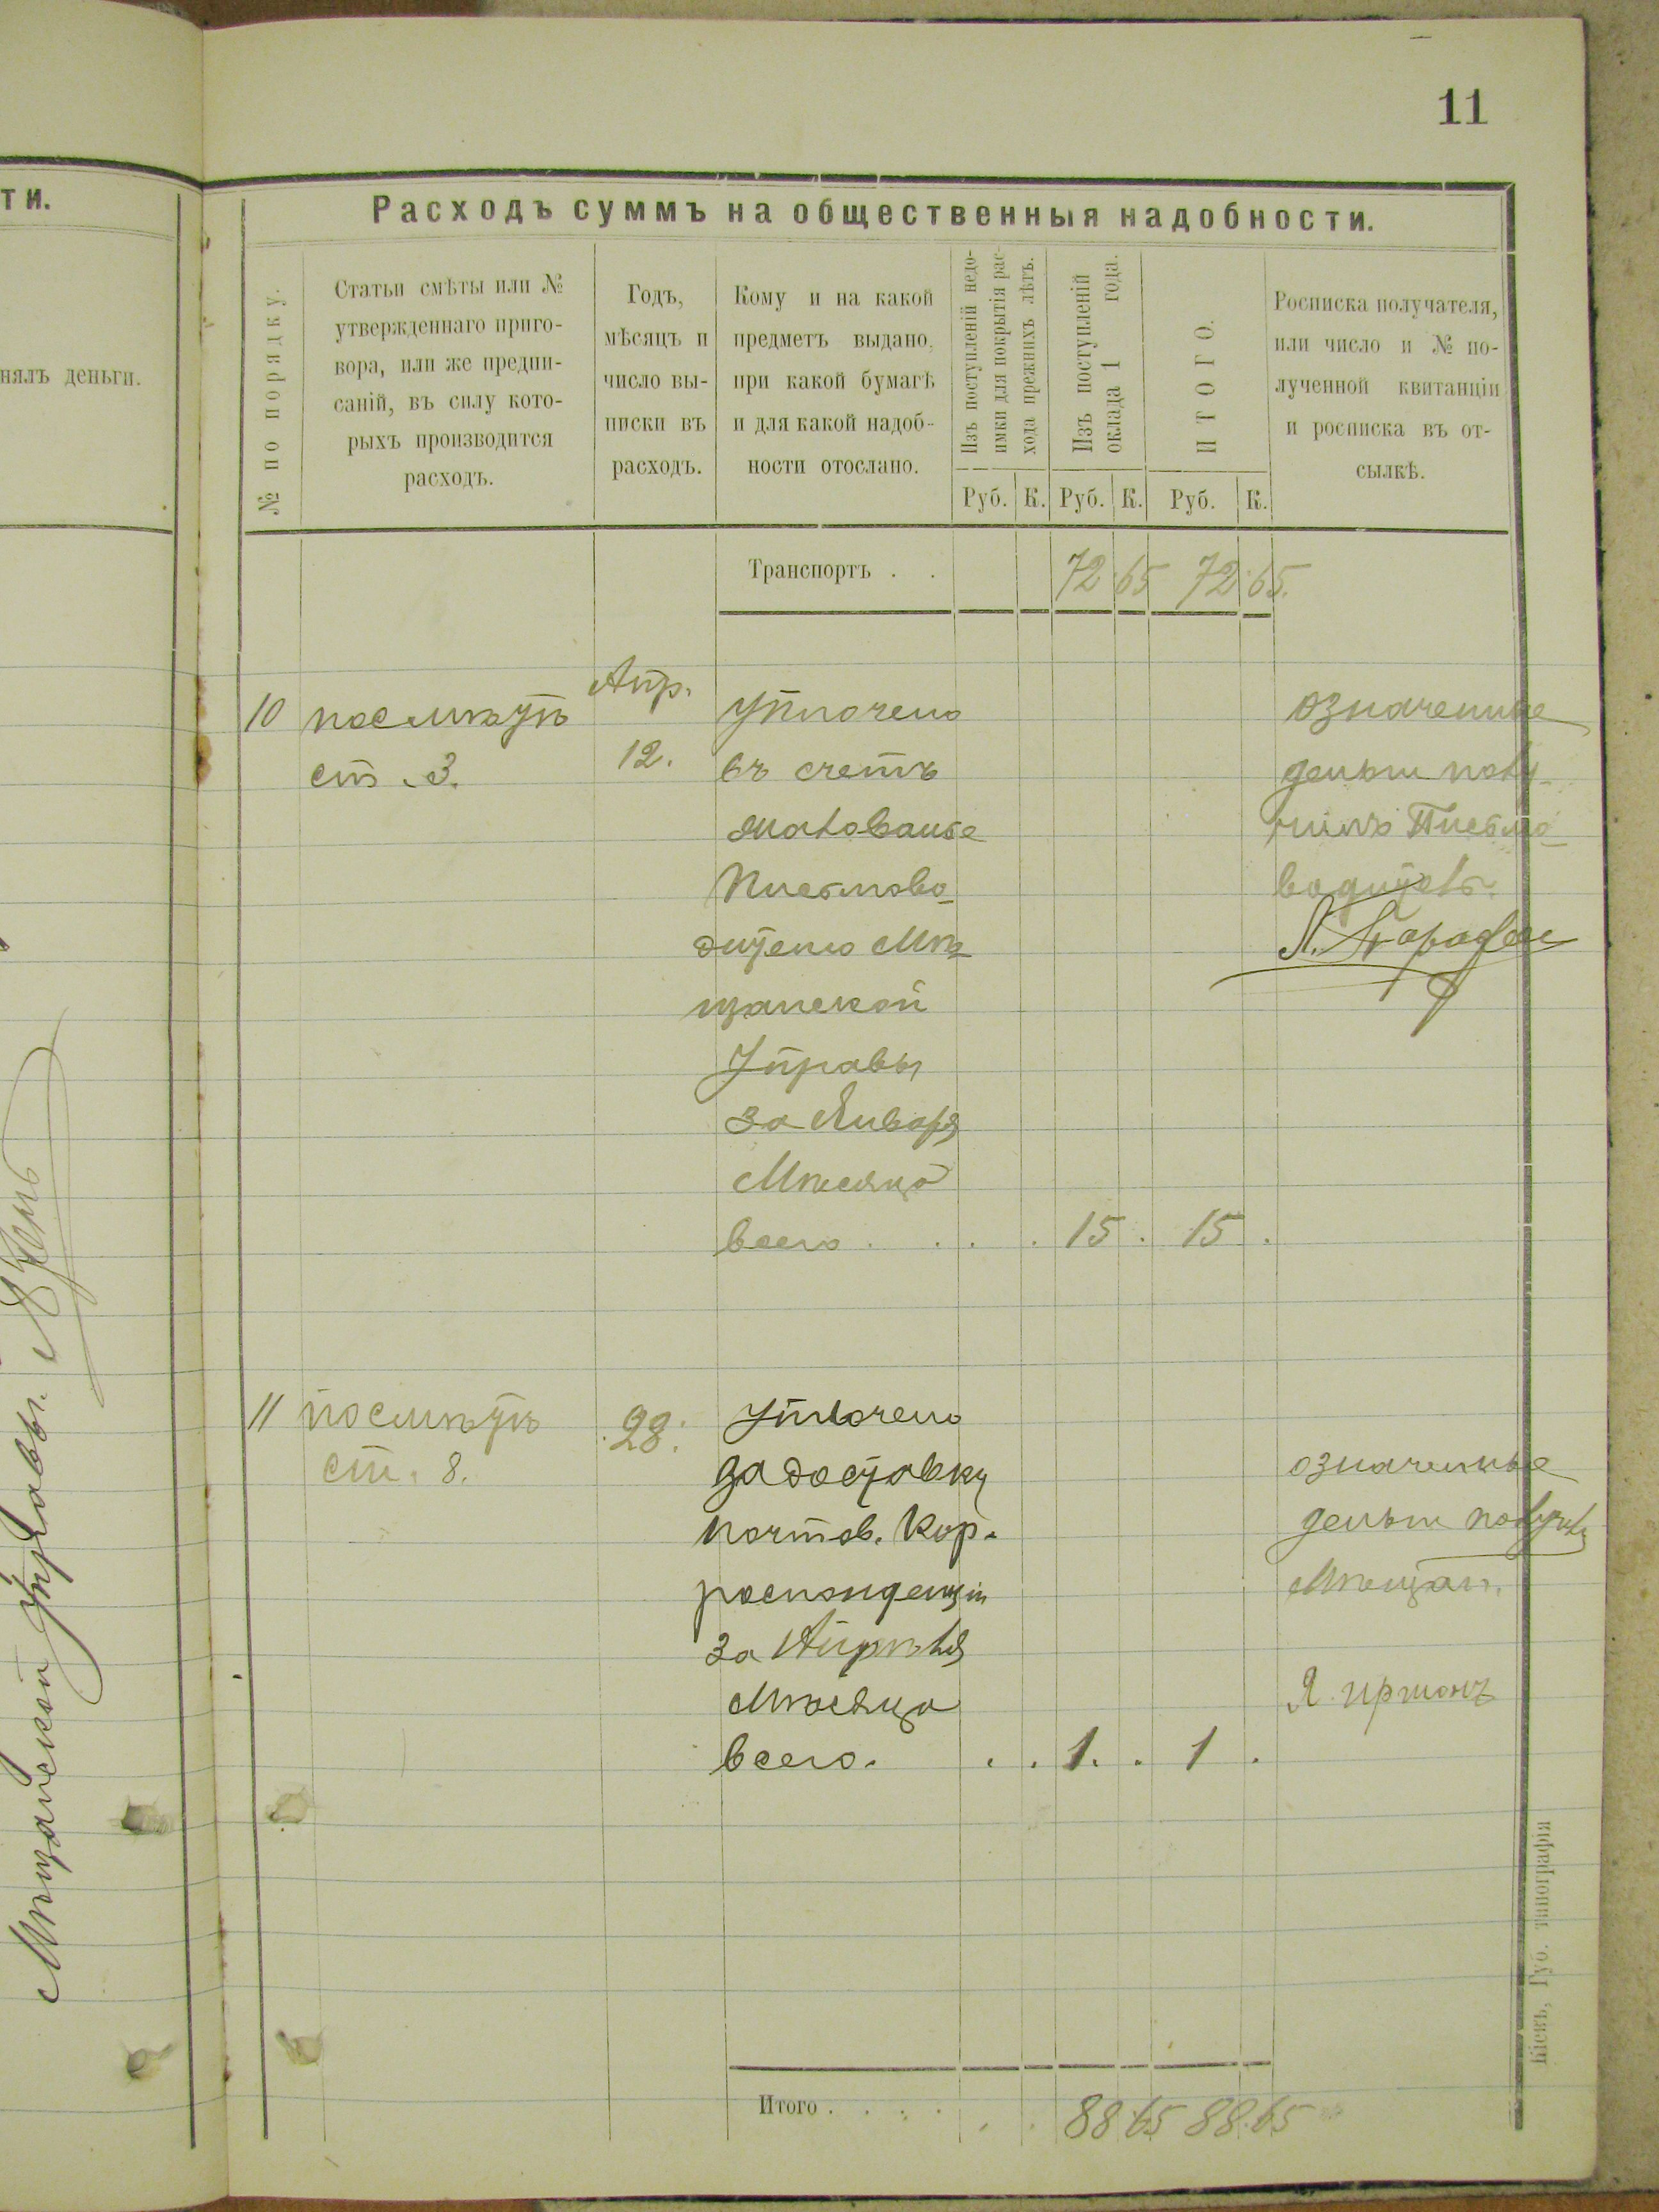 ти.
нялъ деньги.
Мѣщанской Управы.
11
Расходъ суммъ на общественныя надобности.
№ по порядку.
Статьи смѣты или №
утвержденнаго приго-
вора, или же предпи-
саній, въ силу кото-
рыхъ производится
расходъ.
Годъ,
мѣсяцъ и
число вы-
писки въ
расходъ.
Кому и на какой
предметъ выдано,
при какой бумагѣ
и для какой надоб-
ности отослано.
Изъ поступленій недо-
имки для покрытія рас-
хода прежнихъ лѣтъ.
Изъ поступленій
оклада 1 года.
ИТОГО.
Росписка получателя,
или число и № по-
лученной квитанціи
и росписка въ от-
сылкѣ.
Руб. К. Руб. К. Руб. К.
Транспортъ . . 72 65 72 65.
10 посмѣтѣ
ст. 3.
Апр.
12.
Уплочено
въ счетъ
жалованье
Писмово-
дителю Мѣ-
щанской
Управы
за Января
Мѣсяца
всего . . . . 15 . 15 .
означенные
деньги полу-
чилъ Письмо-
водитель
11 посмѣтѣ
ст. 8.
28.
Уплочено
за доставку
почтов. Кор.
роспонденціи
за Апрѣля
Мѣсяца
всего. . . 1. . 1 .
означенные
деньги
Мѣщан.
Итого . . . . . . 88 65 88 65
Кіевъ, Губ. типографія